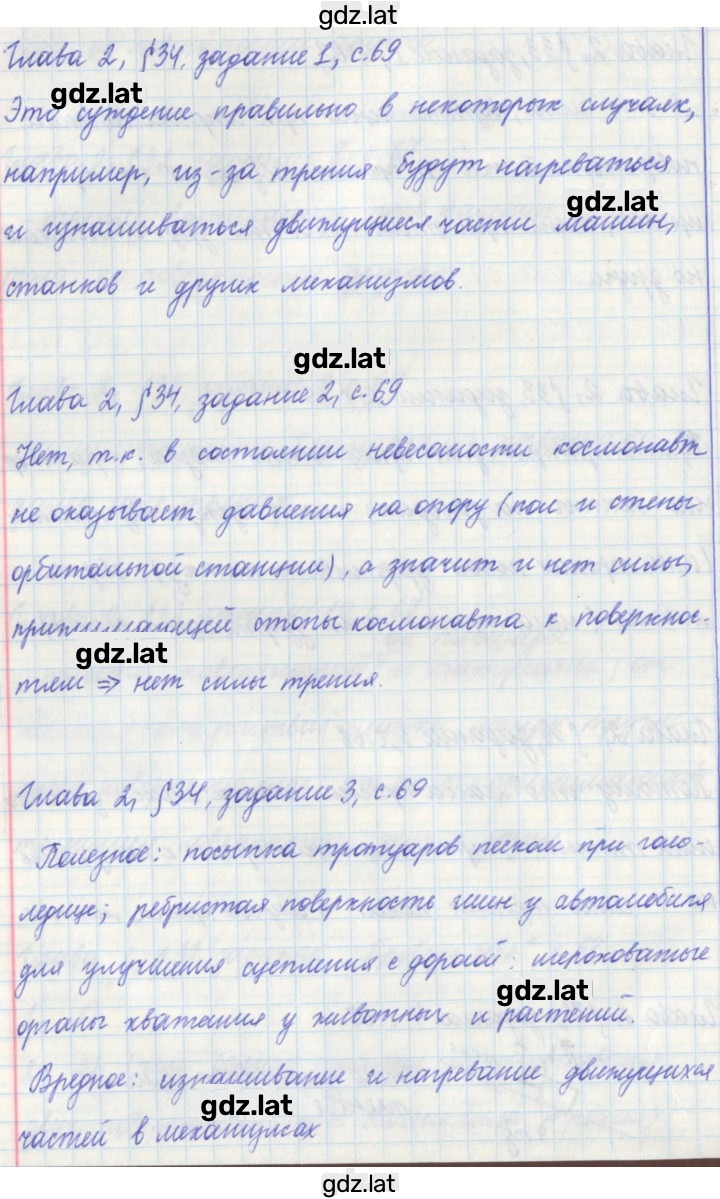 gdz.lat
Глава 2, §34, задание 1, с.69
gdz.lat
Это суждение правильно в некоторых случаях,
например, из-за трения будут нагреваться
gdz.lat
и изнашиваться движущиеся части машин,
станков и других механизмов.
gdz.lat
Глава 2, §34, задание 2, с.69
Нет, т.к. в состоянии невесомости космонавт
не оказывает давления на опору (пол и стены
орбитальной станции), а значит и нет силы,
прижимающей стопы космонавта к поверхнос-
gdz.lat
тям ⇒ нет силы трения.
Глава 2, §34, задание 3, с.69
Полезное: посыпка тротуаров песком при голо-
ледице; ребристая поверхность шин у автомобиля
для улучшения сцепления с дорогой; шероховатые
gdz.lat
органы хватания у животных и растений.
Вредное: изнашивание и нагревание движущихся
gdz.lat
частей в механизмах
gdz.lat